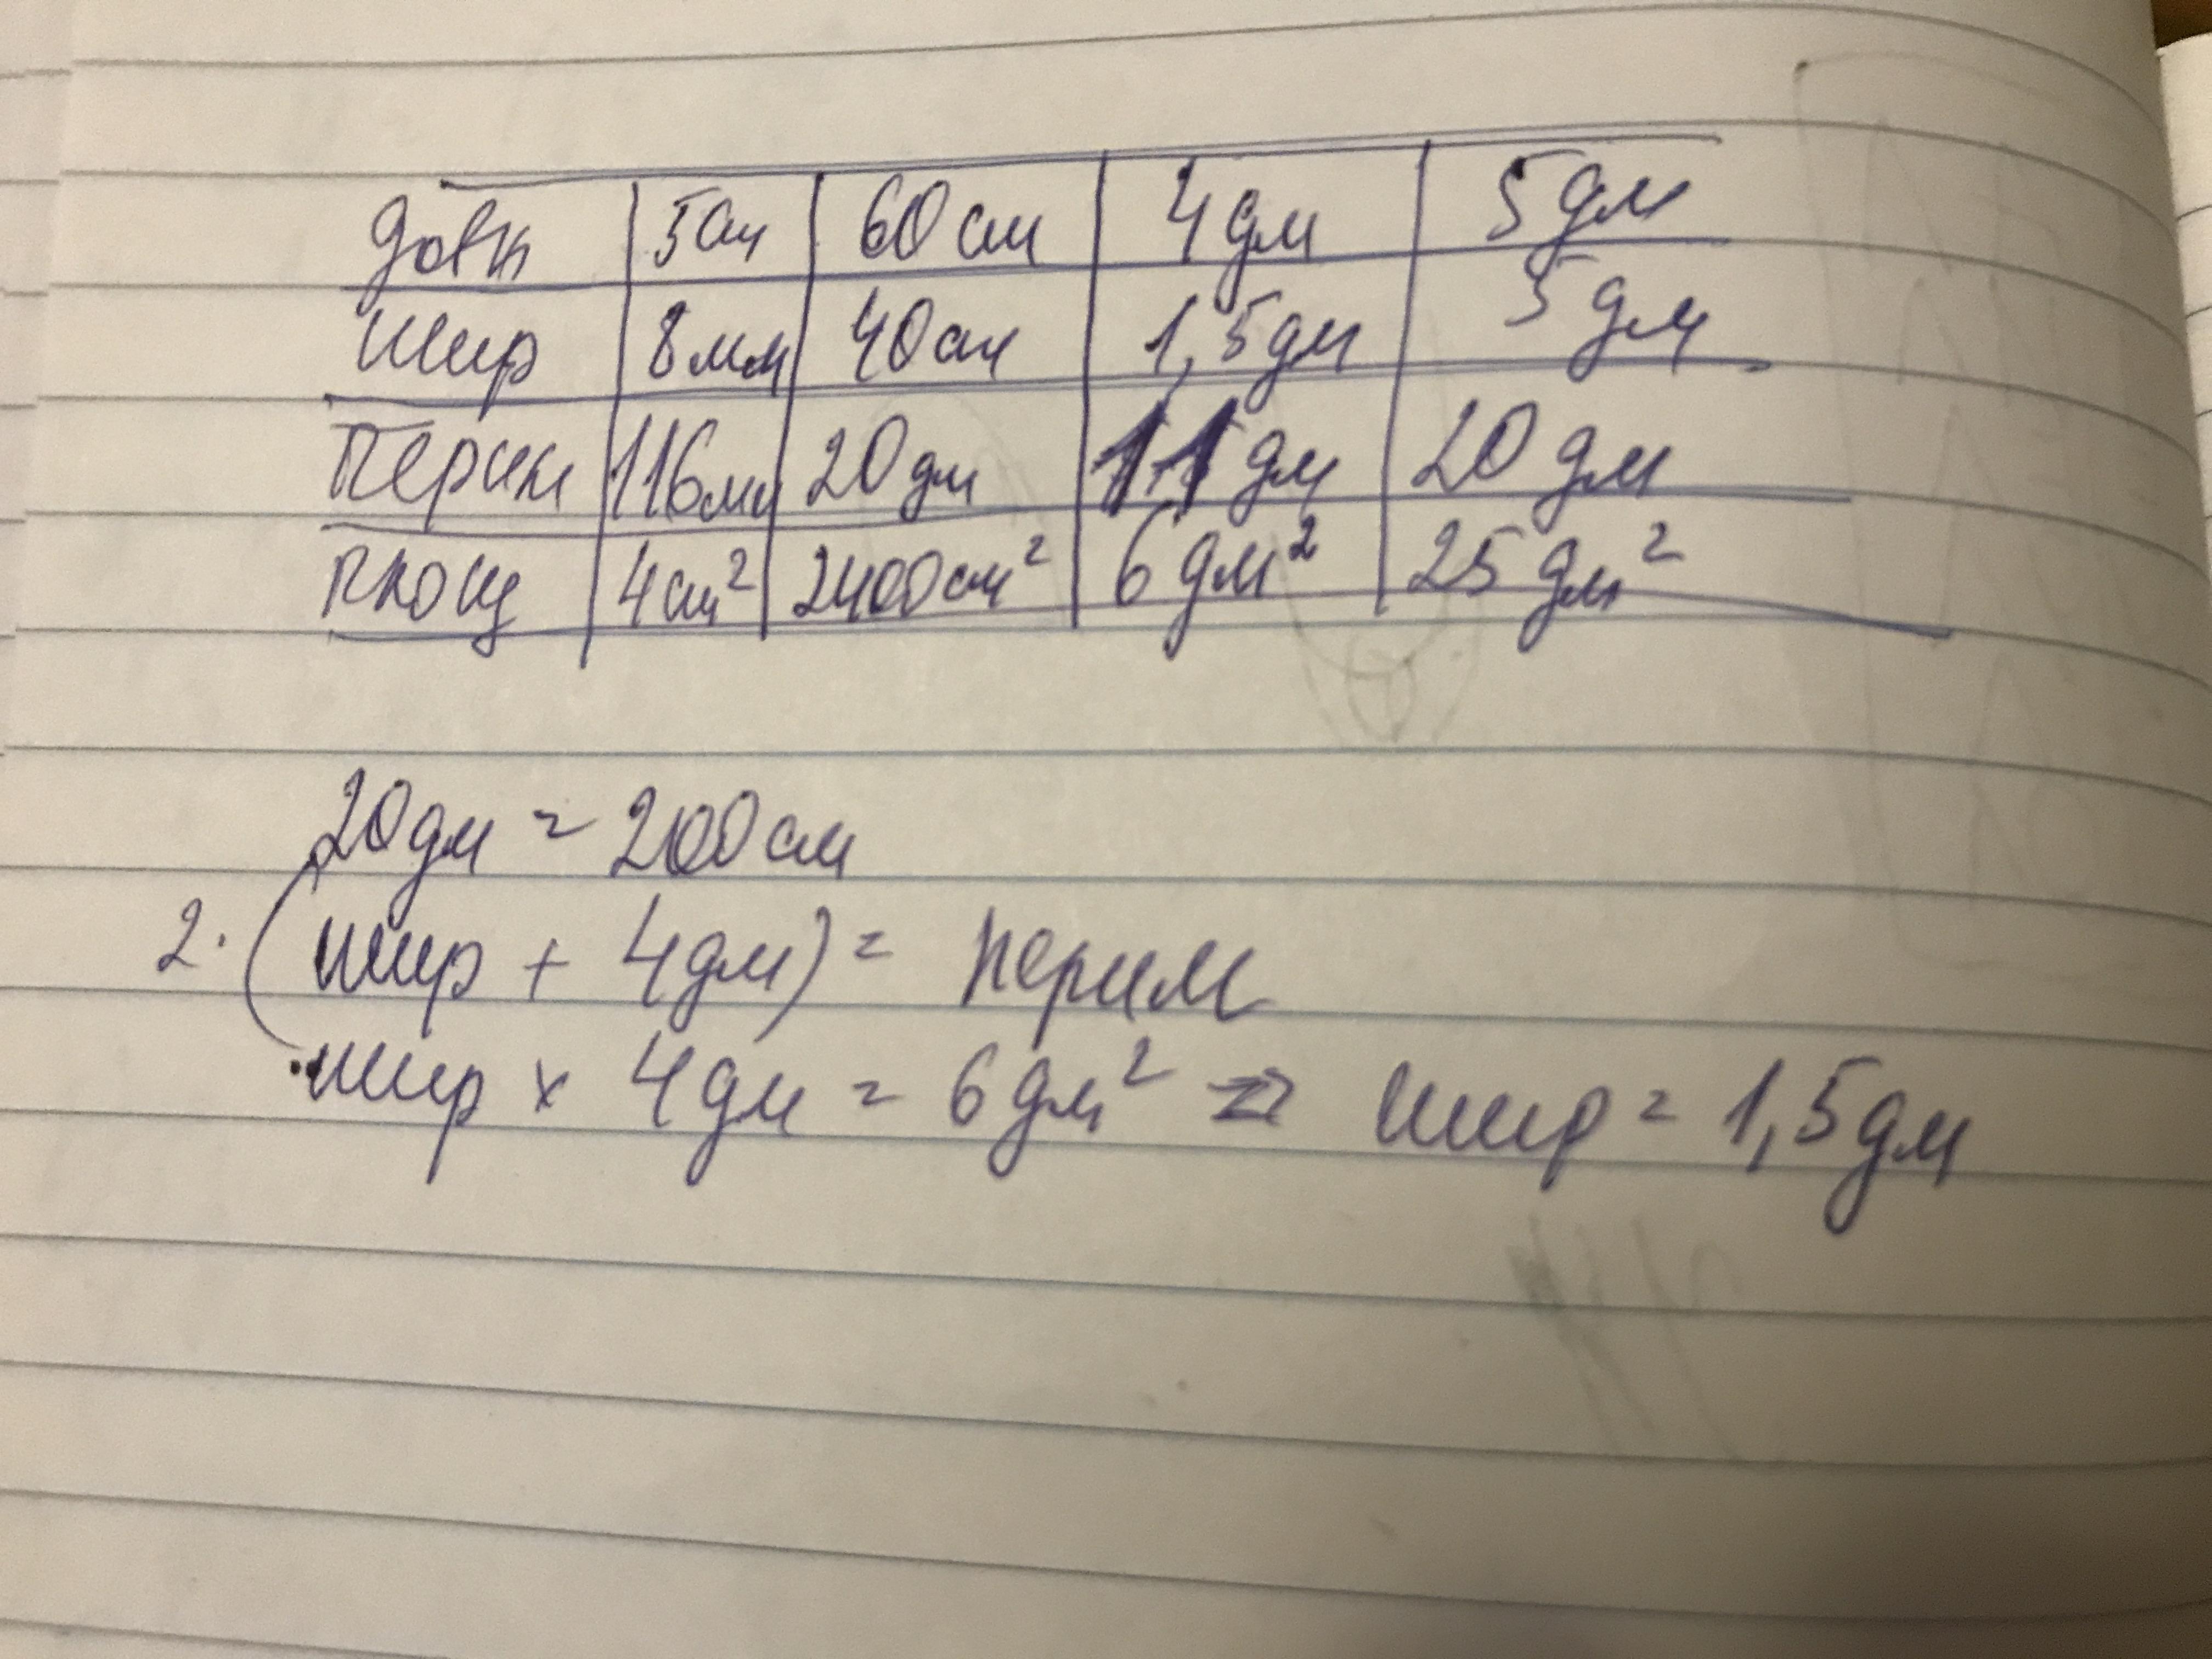 довж 5см 60 см 4 дм 5 дм
шир 8мм 40см 1,5дм 5 дм
перим 116мм 20 дм 11 дм 20 дм
площ 4см² 2400см² 6 дм² 25 дм²
20дм = 200см
2·(шир + 4дм) = перим
шир × 4дм = 6дм² => шир = 1,5дм